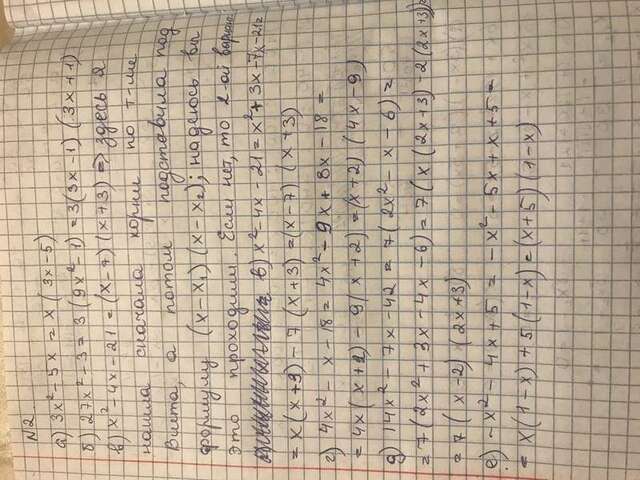 N2
а) 3x² - 5x = x (3x - 5)
б) 27x² - 3 = 3 (9x² - 1) = 3(3x - 1) (3x + 1)
в) x² - 4x - 21 = (x - 7) (x + 3) => здесь я
нашла сначала корни по т-ме
Виета, а потом подставила под
формулу (x - x₁) (x - x₂); надеюсь вы
это проходили. Если нет, то 2-ой вариант
в) x² - 4x - 21 = x² + 3x - 7x - 21 =
= x (x + 3) - 7 (x + 3) = (x - 7) (x + 3)
г) 4x² - x - 18 = 4x² - 9x + 8x - 18 =
= 4x (x + 2) - 9 (x + 2) = (x + 2) (4x - 9)
д) 14x² - 7x - 42 = 7 (2x² - x - 6) =
= 7 (2x² + 3x - 4x - 6) = 7 (x (2x + 3) - 2 (2x + 3)) =
= 7 (x - 2) (2x + 3)
е) -x² - 4x + 5 = -x² - 5x + x + 5 =
= x (1 - x) + 5 (1 - x) = (x + 5) (1 - x)